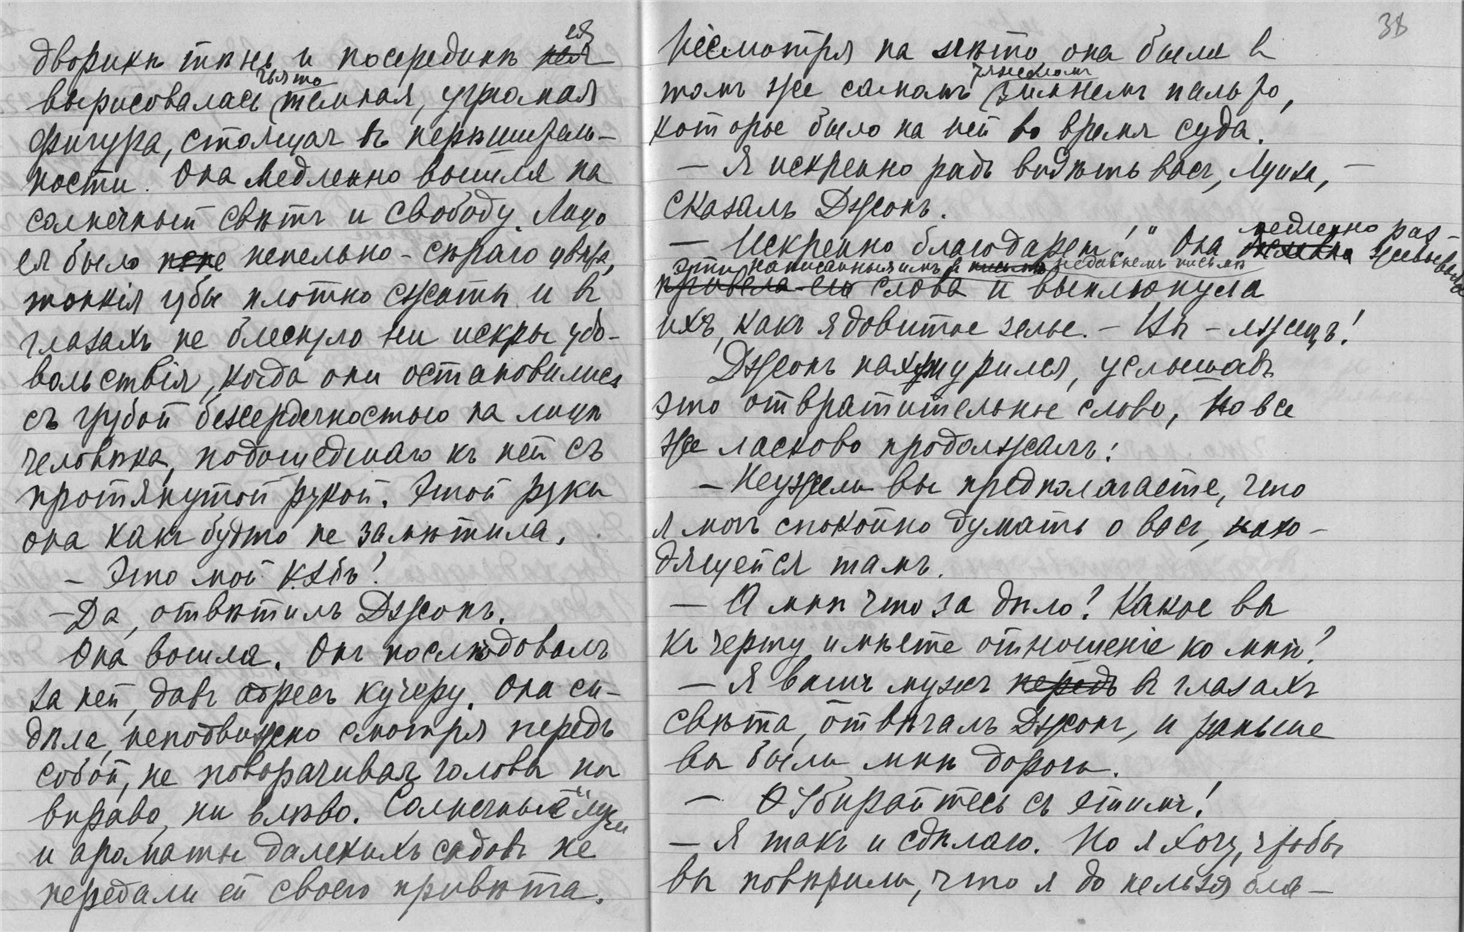 дворикѣ тѣнь и посерединѣ нея ея
вырисовалась чья то темная, угрюмая
фигура, стоящая въ нерѣшитель-
ности. Она медленно вышла на
солнечный свѣтъ и свободу. Лицо
ея было пепе пепельно-сѣраго цвѣта,
тонкія губы плотно сжаты и въ
глазахъ не блеснуло ни искры удо-
вольствія, когда они остановились
съ грубой безсердечностью на лицѣ
человѣка, подошедшаго къ ней съ
протянутой рукой. Этой руки
она какъ будто не замѣтила.
— Это мой кэбъ?
— Да, отвѣтилъ Джонъ.
Она вошла. Онъ послѣдовалъ
за ней, давъ адресъ кучеру. Она си-
дѣла, неподвижно смотря передъ
собой, не поворачивая головы ни
вправо, ни влѣво. Солнечные лучи
и ароматы далекихъ садовъ не
передали ей своего привѣта.
38
Несмотря на лѣто она была въ
томъ же самомъ тяжеломъ зимнемъ пальто,
которое было на ней во время суда.
— Я искренно радъ видѣть васъ, Луиза, —
сказалъ Джонъ.
— Искренно благодаренъ!" Она медленно раз-
жевывала
эти написанныя имъ въ недавнемъ письмѣ
привела его слова и выплюнула
ихъ, какъ ядовитое зелье. — Вы — лжецъ!
Джонъ нахмурился, услышавъ
это отвратительное слово, но все
же ласково продолжалъ:
— Неужели вы предполагаете, что
я могъ спокойно думать о васъ, нахо-
дящейся тамъ.
— А мнѣ что за дѣло? Какое вы
къ черту имѣете отношеніе ко мнѣ?
— Я вашъ мужъ передъ въ глазахъ
свѣта, отвѣчалъ Джонъ, и раньше
вы были мнѣ дороги.
— Убирайтесь съ этимъ!
— Я такъ и сдѣлаю. Но я хочу, чтобы
вы повѣрили, что я до нельзя